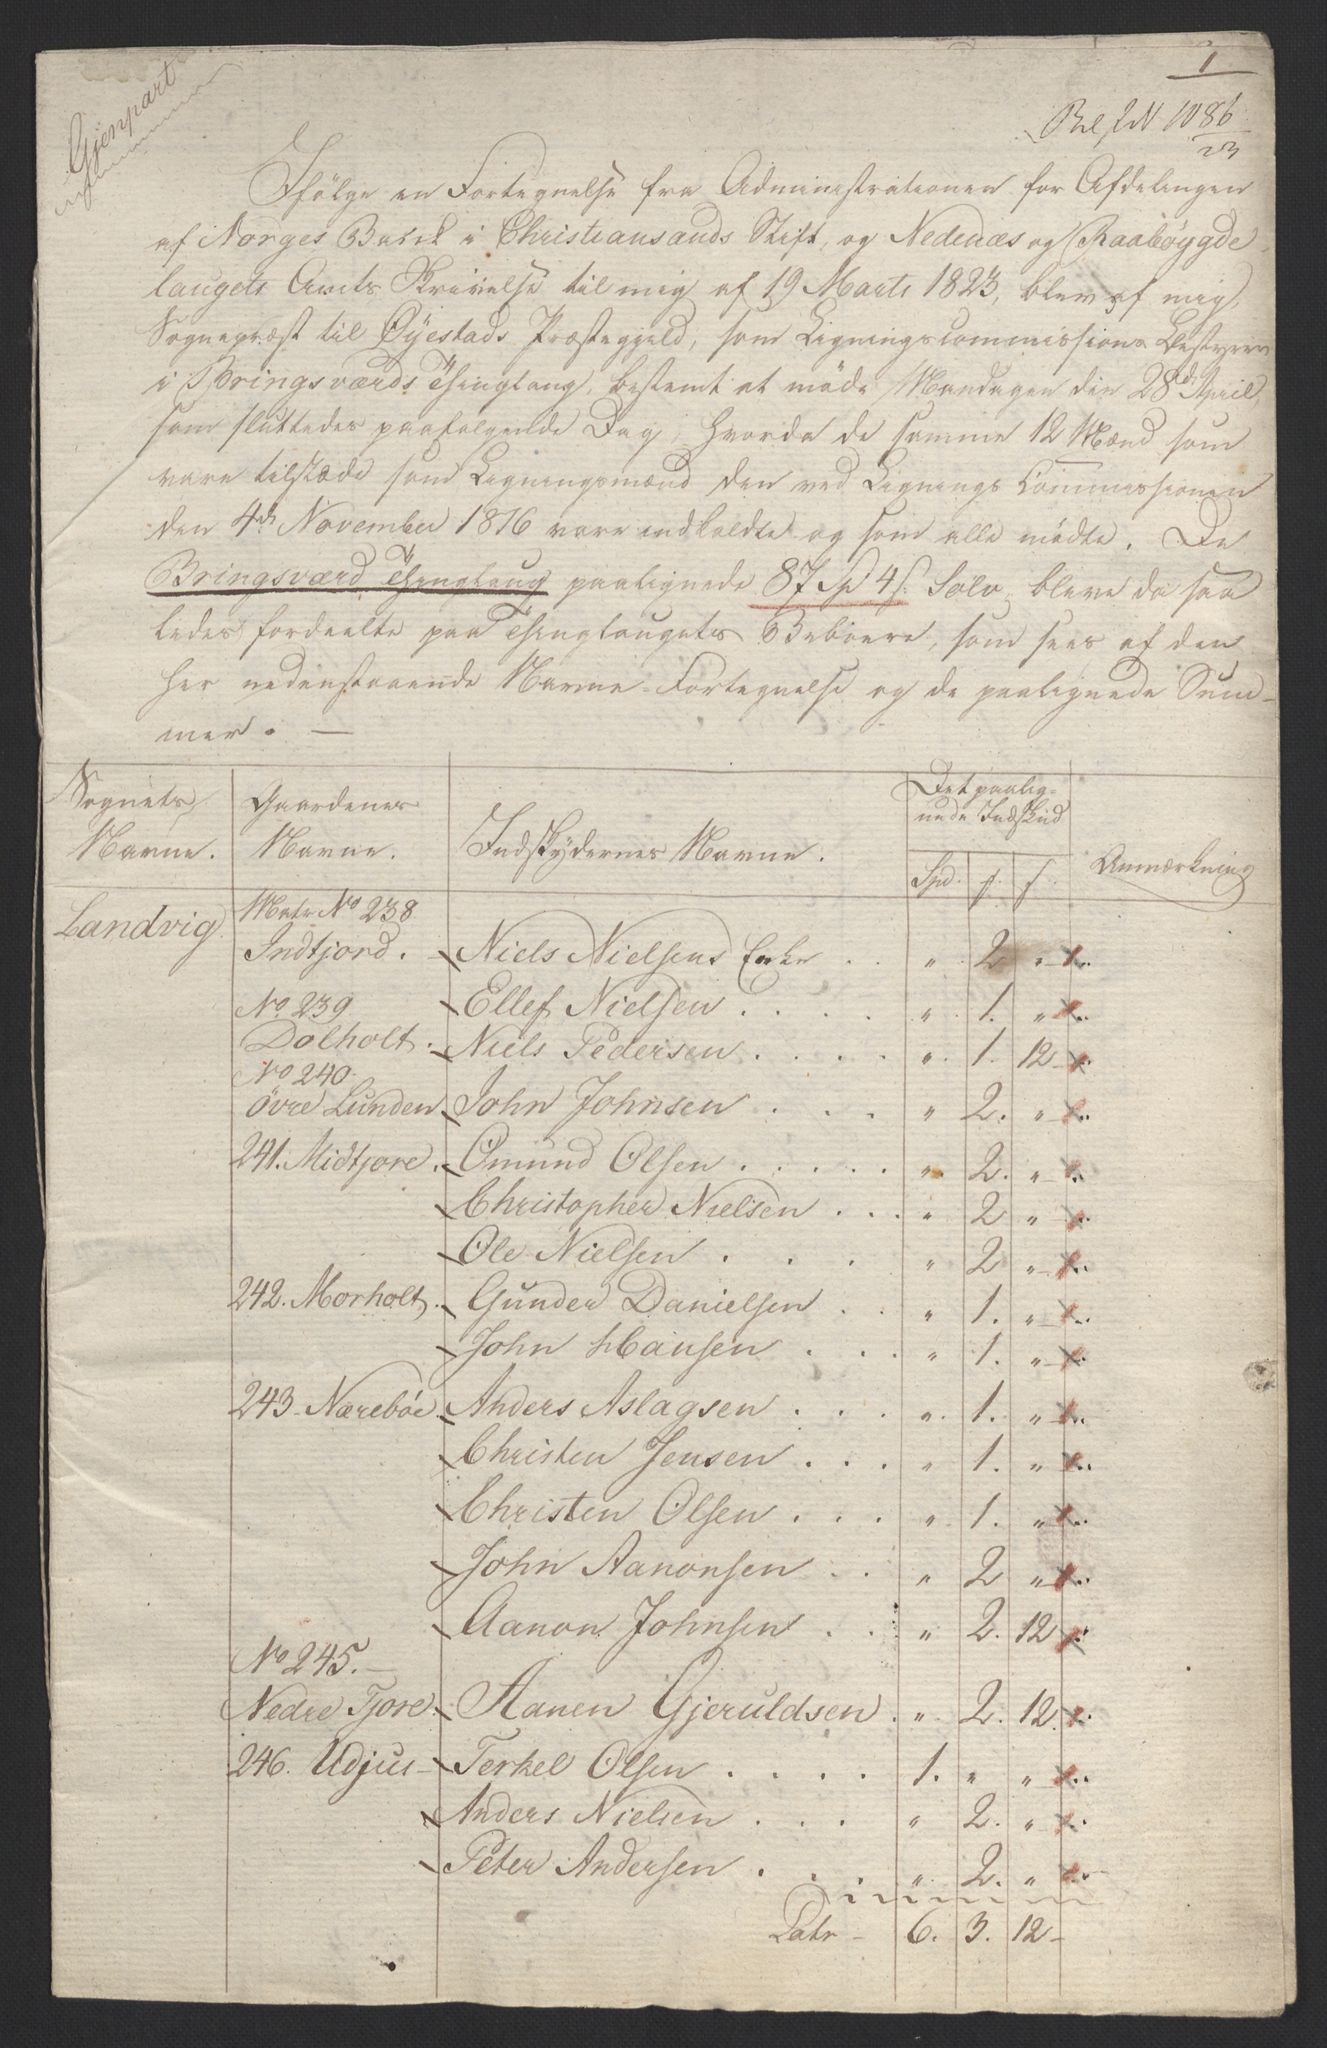 1
Gjenpart
N 1086
23
Ifølge en Fortegnelse fra Administrationen for Afdelingen
af Norges Bank i Christiansands Stift, og Nedenæs og Raabøygde-
laugets Amts Skrivelse til mig af 19 Marts 1823, blev af mig,
Sognepræst til Øyestads Præstegjeld, som Ligningscommissions Bestyrer
i Bringsværds Thinglaug, bestemt at møde Mandagen den 28d April,
som sluttedes paafølgende Dag, hvorda de samme 12 Mænd som
vare tilstæde som Ligningsmænd den ved Lignings Commissionen
den 4de November 1816 vare indkaldte og som alle mødte. De
Bringsværd Thinglaug paalignede 87 Sp 4 s. Sølv, bleve da saa
ledes fordeelte paa Thinglaugets Beboere, som sees af den
her nedenstaaende Navne-Fortegnelse og de paalignede Sum-
mer. —
Sognets Navne. Gaardenes Navne. Indskydernes Navne. Det paalig-
nede Indskud Anmærkning
Spd. s. s.
Landvig Matr No 238
Indtjord. Niels Nielsens Enke . . " 2 "
No 239 Ellef Nielsen . . . . " 1. "
Dolholt. Niels Pedersen . . . . " 1. 12
No 240.
Øvre Lunden John Johnsen . . . " 2. "
241. Midtjore. Omund Olsen . . . . . " 2. "
Christopher Nielsen . . . " 2 "
Ole Nielsen . . . " 2 "
242. Morholt. Gunder Danielsen . . " 1. "
John Hansen . . . " 1. "
243. Nærebøe. Anders Aslagsen . . . " 1. "
Christen Jensen . . . " 1. "
Christen Olsen . . . " 1. "
John Aanonsen . . " 2 "
Aanon Johnsen . . " 2. 12
No 245. —
Nedre Tjore. Aanen Gjeruldsen . " 2. 12
246. Udjus Terkel Olsen . . . . 1. " "
Anders Nielsen . . . " 2. "
Peter Andersen . . . " 2. "
Latr – 6. 3. 12